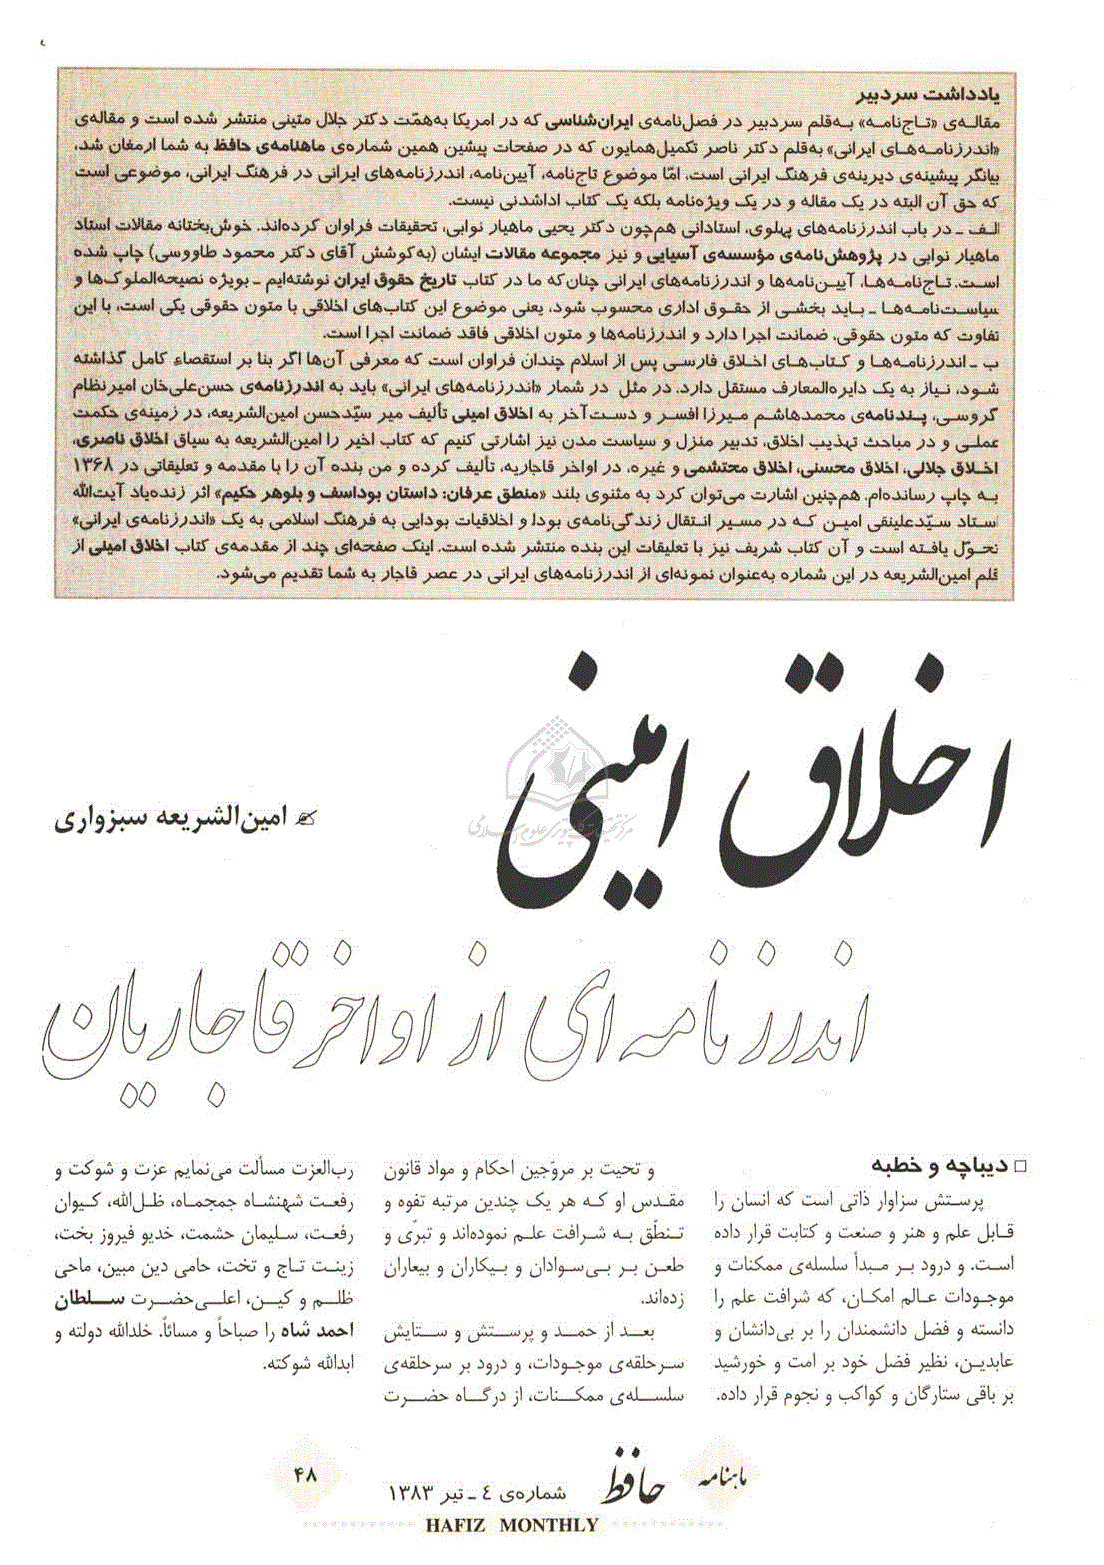 یادداشت سردبیر
مقاله‌ی «تاج‌نامه» به‌قلم سردبیر در فصل‌نامه‌ی ایران‌شناسی که در امریکا به‌همّت دکتر جلال متینی منتشر شده است و مقاله‌ی
«اندرزنامه‌های ایرانی» به‌قلم دکتر ناصر تکمیل‌همایون که در صفحات پیشین همین شماره‌ی ماهنامه‌ی حافظ به شما ارمغان شد،
بیانگر پیشینه‌ی دیرینه‌ی فرهنگ ایرانی است، امّا موضوع تاج‌نامه، آیین‌نامه، اندرزنامه‌های ایرانی در فرهنگ ایرانی، موضوعی است
که حق آن البته در یک مقاله و در یک ویژه‌نامه بلکه یک کتاب اداشدنی نیست.
الف ـ در باب اندرزنامه‌های پهلوی، استادانی هم‌چون دکتر یحیی ماهیار نوابی، تحقیقات فراوان کرده‌اند. خوش‌بختانه مقالات استاد
ماهیار نوابی در پژوهش‌نامه‌ی مؤسسه‌ی آسیایی و نیز مجموعه مقالات ایشان (به‌کوشش آقای دکتر محمود طاووسی) چاپ شده
است. تاج‌نامه‌ها، آیین‌نامه‌ها و اندرزنامه‌های ایرانی چنان‌که ما در کتاب تاریخ حقوق ایران نوشته‌ایم ـ بویژه نصیحه‌الملوک‌ها و
سیاست‌نامه‌ها ـ باید بخشی از حقوق اداری محسوب شود، یعنی موضوع این کتاب‌های اخلاقی با متون حقوقی یکی است، با این
تفاوت که متون حقوقی، ضمانت اجرا دارد و اندرزنامه‌ها و متون اخلاقی فاقد ضمانت اجرا است.
ب ـ اندرزنامه‌ها و کتاب‌های اخلاق فارسی پس از اسلام چندان فراوان است که معرفی آن‌ها اگر بنا بر استقصاء کامل گذاشته
شود، نیاز به یک دایره‌المعارف مستقل دارد. در مثل در شمار «اندرزنامه‌های ایرانی» باید به اندرزنامه‌ی حسن‌علی‌خان امیرنظام
گروسی، پندنامه‌ی محمدهاشم میرزا افسر و دست‌آخر به اخلاق امینی تألیف میر سیّدحسن امین‌الشریعه، در زمینه‌ی حکمت
عملی و در مباحث تهذیب اخلاق، تدبیر منزل و سیاست مدن نیز اشارتی کنیم که کتاب اخیر را امین‌الشریعه به سیاق اخلاق ناصری،
اخلاق جلالی، اخلاق محسنی، اخلاق محتشمی و غیره، در اواخر قاجاریه، تألیف کرده و من بنده آن را با مقدمه و تعلیقاتی در ۱۳۶۸
به چاپ رسانده‌ام. هم‌چنین اشارت می‌توان کرد به مثنوی بلند «منطق عرفان: داستان بوداسف و بلوهر حکیم» اثر زنده‌یاد آیت‌الله
استاد سیّدعلینقی امین که در مسیر انتقال زندگی‌نامه‌ی بودا و اخلاقیات بودایی به فرهنگ اسلامی به یک «اندرزنامه‌ی ایرانی»
تحوّل یافته است و آن کتاب شریف نیز با تعلیقات این بنده منتشر شده است. اینک صفحه‌ای چند از مقدمه‌ی کتاب اخلاق امینی از
قلم امین‌الشریعه در این شماره به‌عنوان نمونه‌ای از اندرزنامه‌های ایرانی در عصر قاجار به شما تقدیم می‌شود.
اخلاق امینی
امین‌الشریعه سبزواری
مرکز تحقیقات کامپیوتری علوم اسلامی
اندرزنامه‌ای از اواخر قاجاریان
□ دیباچه و خطبه
پرستش سزاوار ذاتی است که انسان را
قابل علم و هنر و صنعت و کتابت قرار داده
است. و درود بر مبدأ سلسله‌ی ممکنات و
موجودات عالم امکان، که شرافت علم را
دانسته و فضل دانشمندان را بر بی‌دانشان و
عابدین، نظیر فضل خود بر امت و خورشید
بر باقی ستارگان و کواکب و نجوم قرار داده.
و تحیت بر مروّجین احکام و مواد قانون
مقدس او که هر یک چندین مرتبه تفوه و
تنطّق به شرافت علم نموده‌اند و تبرّی و
طعن بر بی‌سوادان و بیکاران و بیعاران
زده‌اند.
بعد از حمد و پرستش و ستایش
سرحلقه‌ی موجودات، و درود بر سرحلقه‌ی
سلسله‌ی ممکنات، از درگاه حضرت
رب‌العزت مسألت می‌نمایم عزت و شوکت و
رفعت شهنشاه جمجماه، ظل‌الله، کیوان
رفعت، سلیمان حشمت، خدیو فیروز بخت،
زینت تاج و تخت، حامی دین مبین، ماحی
ظلم و کین، اعلی‌حضرت سلطان
احمد شاه را صباحاً و مسائاً. خلدالله دولته و
ابدالله شوکته.
ماهنامه حافظ شماره‌ی ٤ ـ تیر ۱۳۸۳ ۴۸
HAFIZ MONTHLY